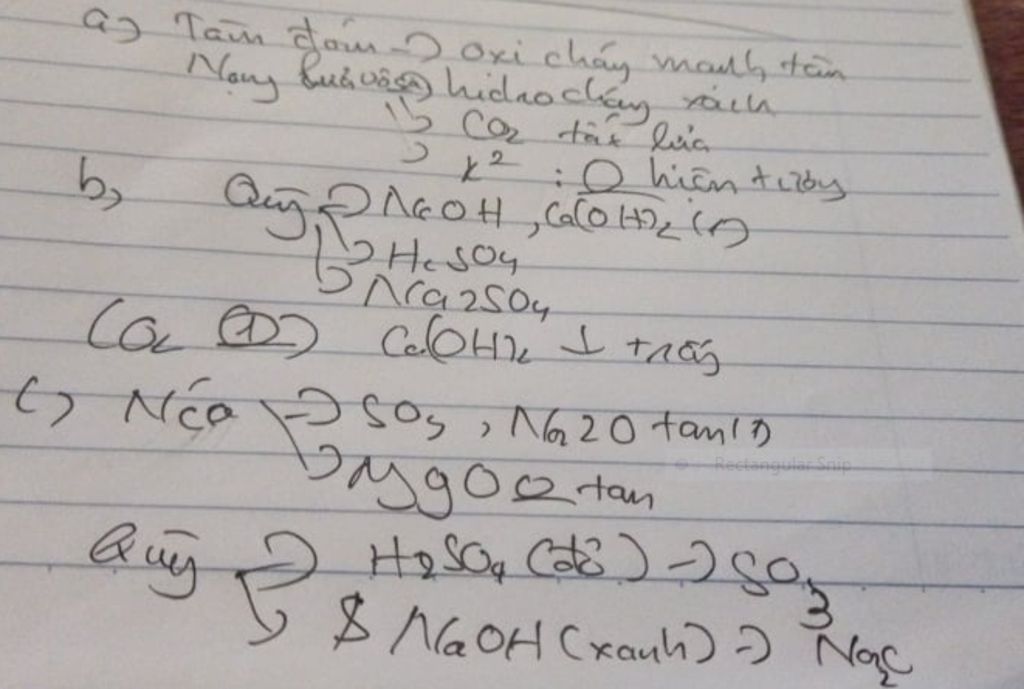 a) Tàn đóm -> oxi cháy mạnh tàn
hidro cháy xanh
-> CO2 tắt lửa
-> k2 : 0 hiện tượng
b, Quỳ -> NaOH, Ca(OH)2 (1)
-> H2SO4
-> Na2SO4
CO2 (1) Ca(OH)2 ↓ trắng
c) Nước -> SO3, Na2O tan (1)
-> MgO 0 tan
Quỳ -> H2SO4 (đỏ) -> SO3
-> NaOH (xanh) -> Na2O
Rectangular Snip